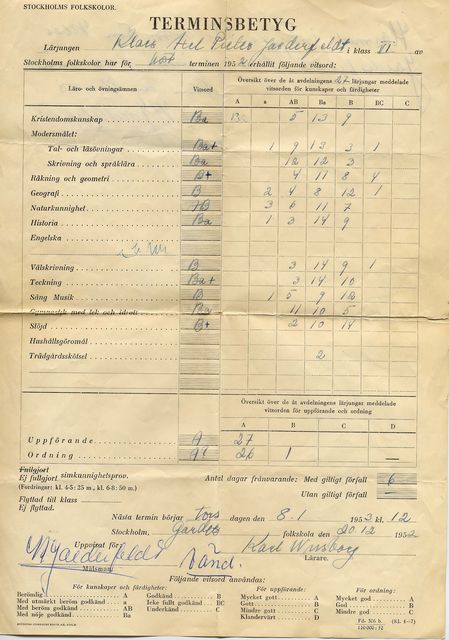 STOCKHOLMS FOLKSKOLOR.
TERMINSBETYG
Lärjungen Klaes Axel Pieter Garderfeldt i klass VI av
Stockholms folkskolor har för höst terminen 1952 erhållit följande vitsord:
Läro- och övningsämnen Vitsord Översikt över de åt avdelningens 27 lärjungar meddelade vitsorden för kunskaper och färdigheter
A a AB Ba B BC C
Kristendomskunskap Ba 5 13 9
Modersmålet:
Tal- och läsövningar Ba+ 1 9 13 3 1
Skrivning och språklära Ba 12 12 3
Räkning och geometri B+ 4 11 8 4
Geografi B 2 4 8 12 1
Naturkunnighet AB 3 6 11 7
Historia Ba 1 3 14 9
Engelska
Välskrivning B 3 14 9 1
Teckning Ba+ 3 14 10
Sång Musik B 1 5 9 12
Gymnastik med lek och idrott Ba 11 10 5
Slöjd B+ 2 10 14
Hushållsgöromål
Trädgårdsskötsel 2
Översikt över de åt avdelningens lärjungar meddelade vitsorden för uppförande och ordning
A B C D
Uppförande A 27
Ordning A 26 1 —
Fullgjort
Ej fullgjort simkunnighetsprov.
(Fordringar: kl. 4-5: 25 m., kl. 6-8: 50 m.)
Antal dagar frånvarande: Med giltigt förfall 6
Utan giltigt förfall —
Flyttad till klass
Ej flyttad.
Nästa termin börjar tors dagen den 8.1 1953 kl. 12
Stockholm, Gärdets folkskola den 20.12 1952
Uppvisat för
Målsman.
Vänd.
Karl Winborg
Lärare.
Följande vitsord användas:
För kunskaper och färdigheter:
Berömlig A
Med utmärkt beröm godkänd a
Med beröm godkänd AB
Med nöje godkänd Ba
Godkänd B
Icke fullt godkänd BC
Underkänd C
För uppförande:
Mycket gott A
Gott B
Mindre gott C
Klandervärt D
För ordning:
Mycket god A
God B
Mindre god C
Fd. 306 b. (Kl. 4—7)